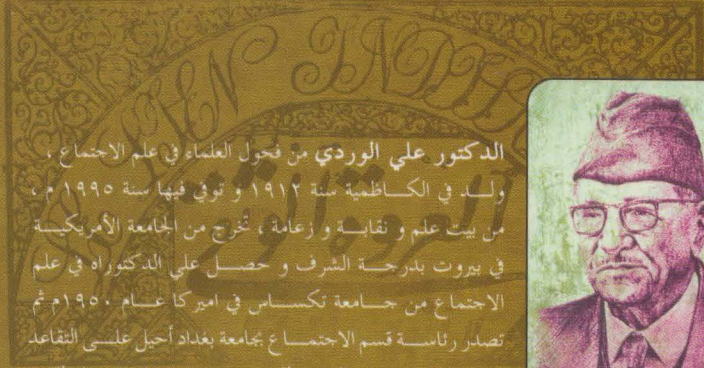 الدكتور علي الوردي من فحول العلماء في علم الاجتماع ،
ولد في الكاظمية سنة ١٩١٢ و توفي فيها سنة ١٩٩٥ م ،
من بيت علم و نقابة و زعامة ، تخرج من الجامعة الأمريكية
في بيروت بدرجة الشرف و حصل علي الدكتوراه في علم
الاجتماع من جامعة تكساس في اميركا عام ١٩٥٠م ثم
تصدر رئاسة قسم الاجتماع بجامعة بغداد أحيل على التقاعد
العروة الوثقى